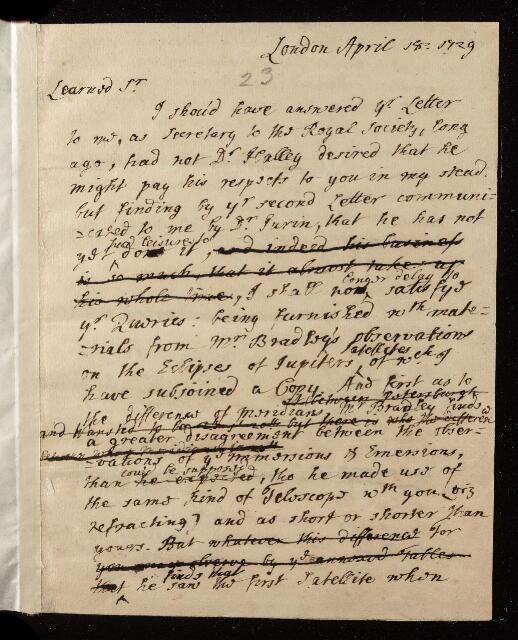 London April 18. 1729
23
Learned Sr.
I should have answered yr. Letter
to me, as Secretary to the Royal Society, long
ago, had not Dr. Halley desired that he
might pay his respects to you in my stead.
but finding by yr second Letter communi-
-cated to me by Dr. Jurin, that he has not
had leisure to
yet it, and indeed his business
is so much, that it almost takes up
longer delay to
his whole time, I shall satisfye
yr. Queries: being furnished wth mate-
-rials from Mr Bradley's observations
Satellites
on the Eclipses of Jupiters, of wch. I
have subjoined a Copy. And first as to
between Petersburgh
the difference of meridians Mr Bradley finds
and Wansted to be but there is
a greater disagreement between the obser-
-vations of ye Immersions & Emersions,
could be supposed
than he expected, tho he made use of
the same kind of Telescope wth you (viz
refracting) and as short or shorter than
yours. But whatever this difference for
by ye annexed tables
finds that
that he saw the first Satellite when